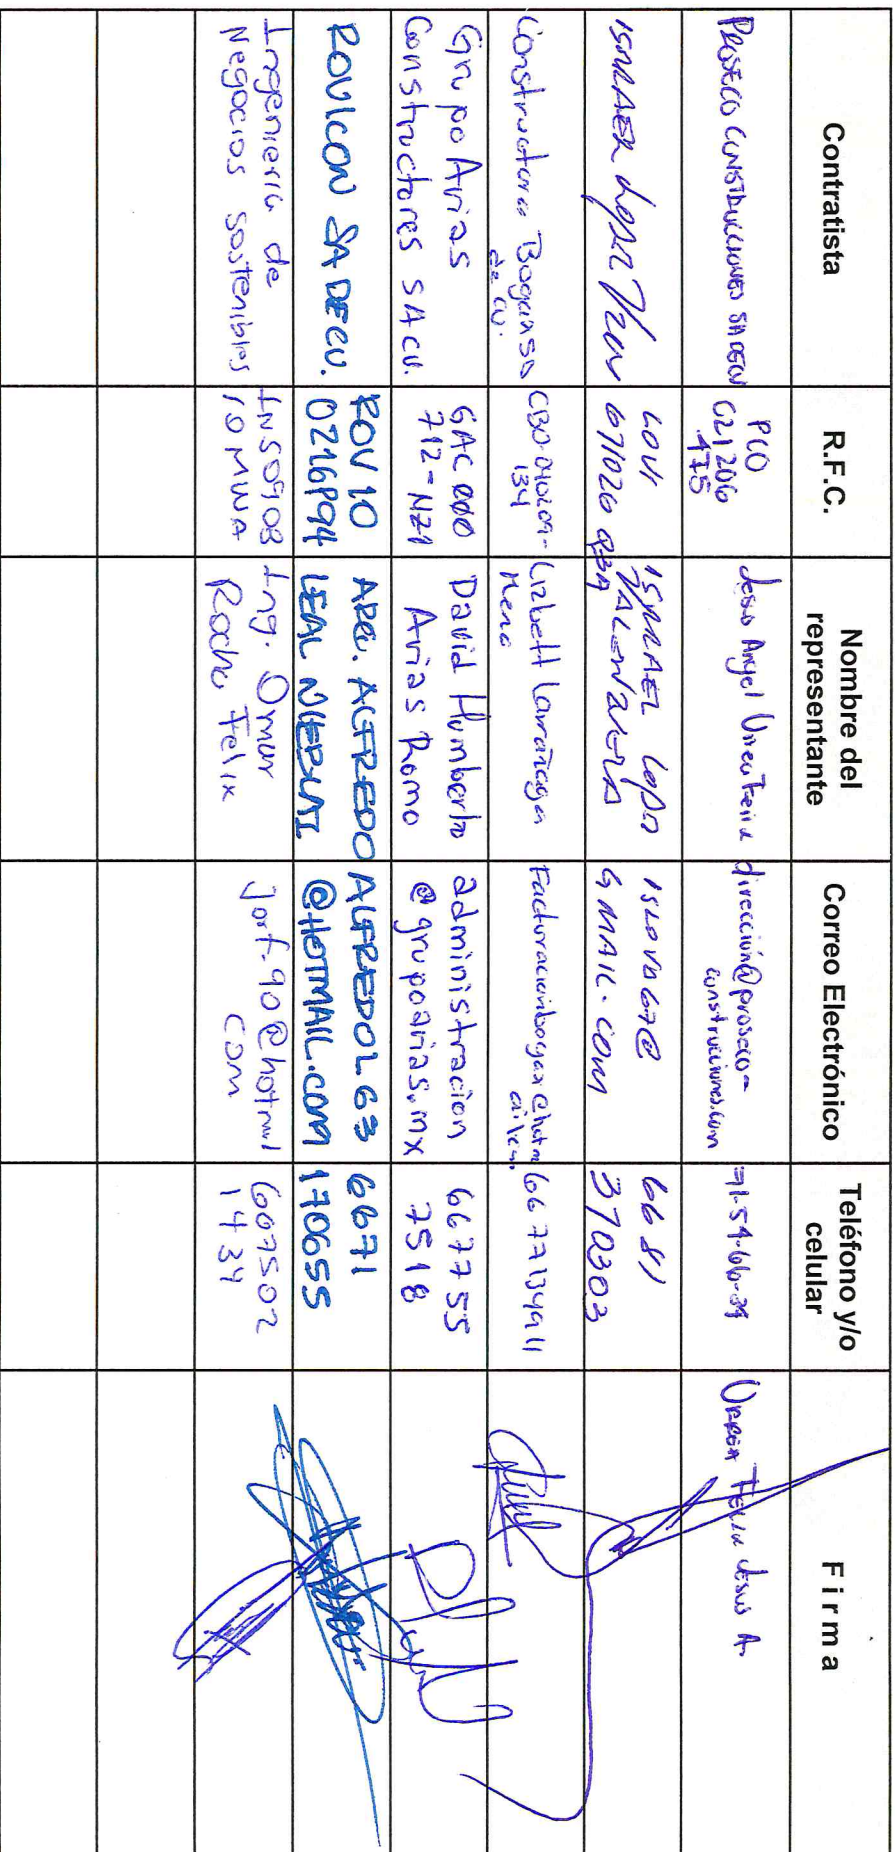 Contratista
R.F.C.
Nombre del
representante
Correo Electrónico
Teléfono y/o
celular
Firma
PROSECO CONSTRUCCIONES SA DE CV
PCO
021206
475
Jesus Angel Urrea Felix
dirección@proseco-
construcciones.com
71-54-66-39
URREA FELIX JESUS A.
ISMRAEL Lopez
LOVI
671026
ISMRAEL Lopz
VALENZUELA
ISLOVA67@
GMAIL.COM
6681
370303
Constructora Bogaxso
de cv.
CBO-040209-
134
Lizbett Larrañaga
Mena
Facturacionbogax@hotm
ail.com
6677134911
Grupo Arias
Constructores SA CV.
GAC 000
712-NZ1
David Humberto
Arias Romo
administracion
@grupoarias.mx
667755
7518
ROVICON SA DE CV.
ROV 10
0216P94
ARQ. ALFREDO
LEAL NIEBLAI
ALFREDOL63
@HOTMAIL.COM
6671
170655
Ingenieria de
Negocios Sostenibles
INS0908
10MWA
Ing. Omar
Rocho Felix
Jorf-90@hotmail
com
667502
1434